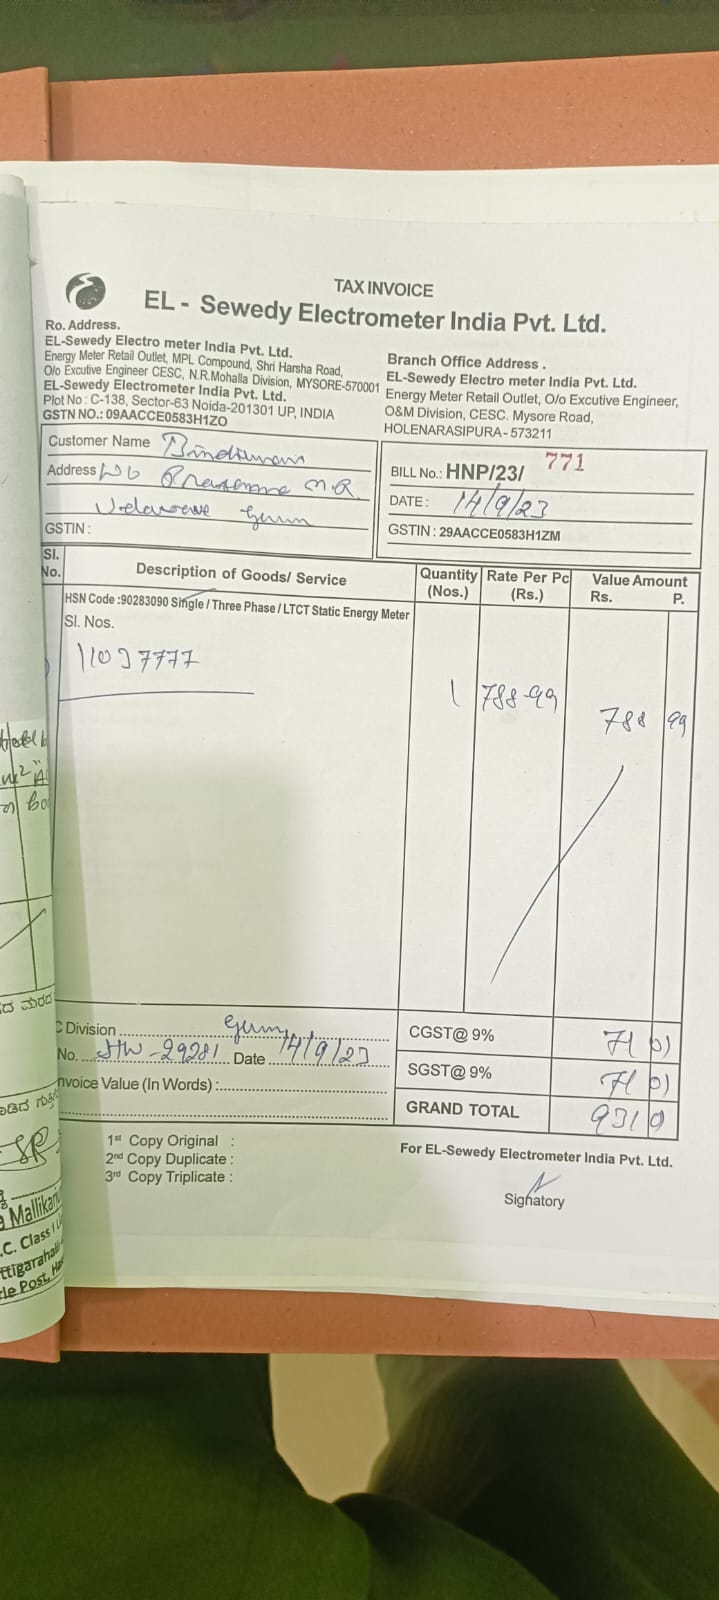 TAX INVOICE
EL - Sewedy Electrometer India Pvt. Ltd.
Ro. Address.
EL-Sewedy Electro meter India Pvt. Ltd.
Energy Meter Retail Outlet, MPL Compound, Shri Harsha Road,
O/o Excutive Engineer CESC, N.R.Mohalla Division, MYSORE-570001
EL-Sewedy Electrometer India Pvt. Ltd.
Plot No : C-138, Sector-63 Noida-201301 UP, INDIA
GSTN NO.: 09AACCE0583H1ZO
Branch Office Address .
EL-Sewedy Electro meter India Pvt. Ltd.
Energy Meter Retail Outlet, O/o Excutive Engineer,
O&M Division, CESC. Mysore Road,
HOLENARASIPURA - 573211
Customer Name
Address W/o
GSTIN :
BILL No.: HNP/23/ 771
DATE : 14/9/23
GSTIN : 29AACCE0583H1ZM
Sl. No. Description of Goods/ Service Quantity (Nos.) Rate Per Pc (Rs.) Value Amount Rs. P.
HSN Code :90283090 Single / Three Phase / LTCT Static Energy Meter
Sl. Nos.
11097777 1 788-99 788 99
C Division
No. Date 14/9/23
nvoice Value (In Words) :
CGST@ 9% 71 01
SGST@ 9% 71 01
GRAND TOTAL 931 0
1st Copy Original :
2nd Copy Duplicate :
3rd Copy Triplicate :
For EL-Sewedy Electrometer India Pvt. Ltd.
Sighatory
Mallikar
.C. Class I
ttigarahal
le Post, Ha